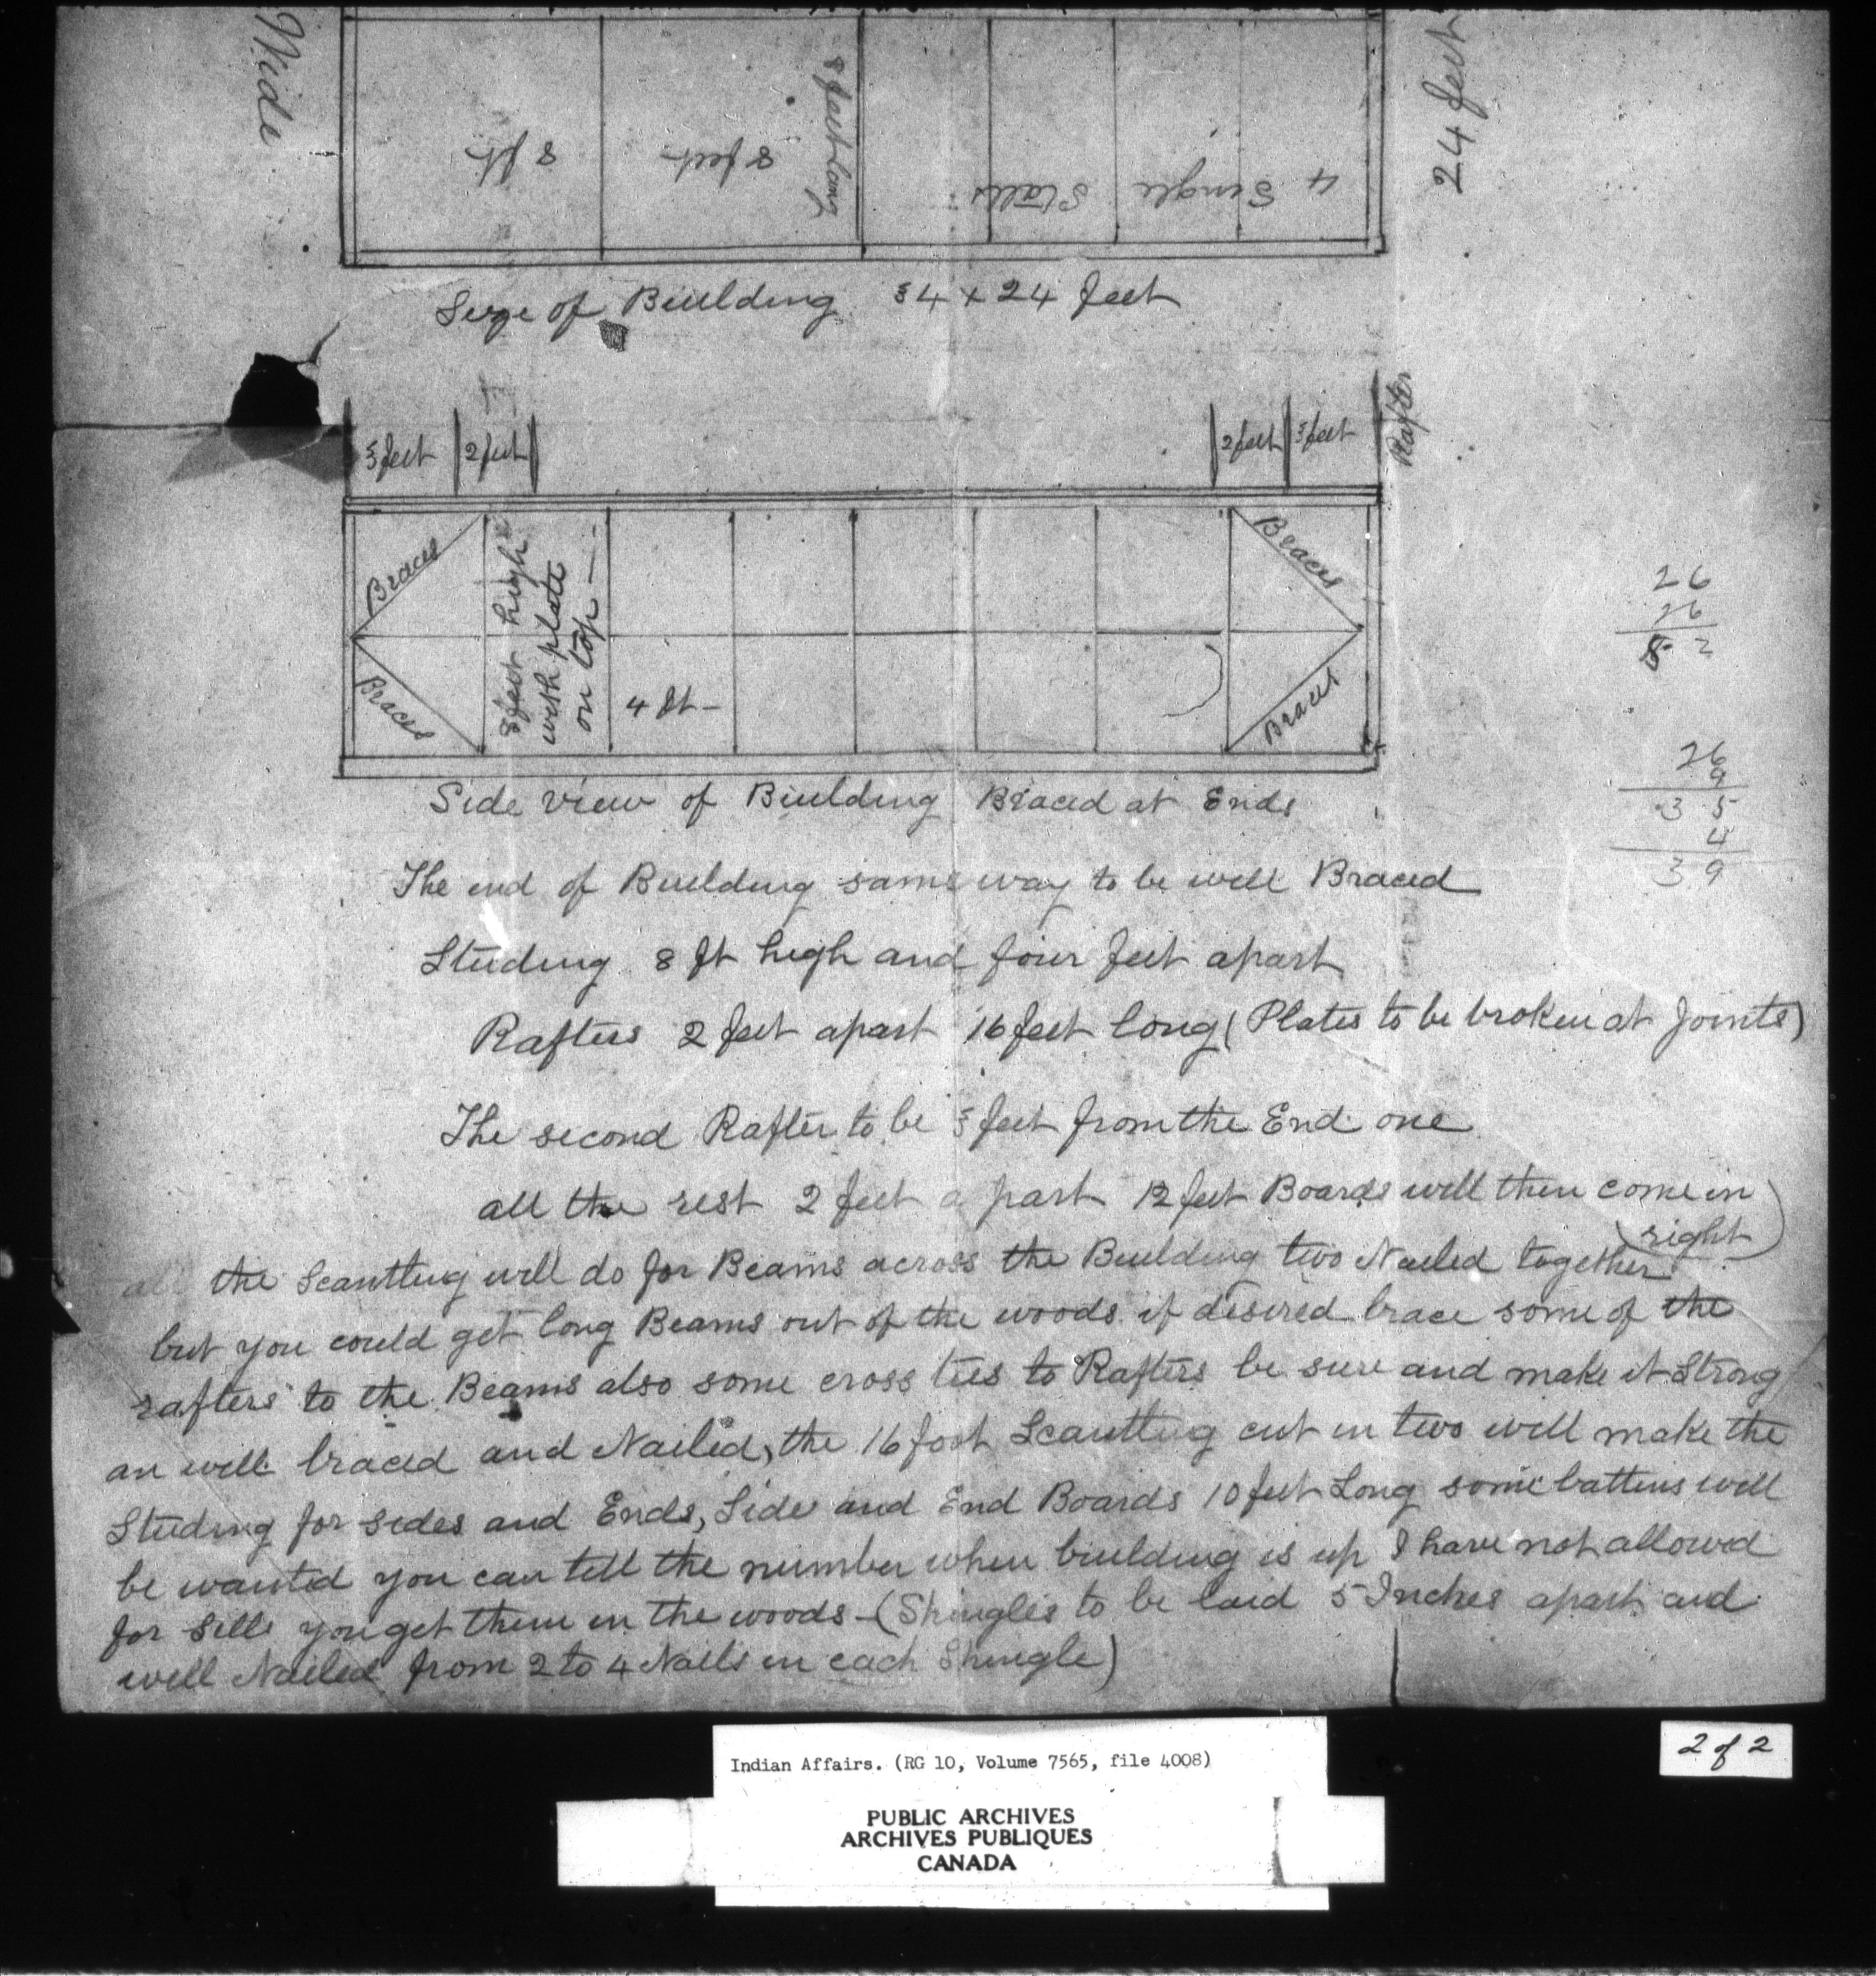 Wide
24 feet
8 ft
8 feet
8 feet Long
4 Single Stalls
Size of Building 34 x 24 feet
3 feet
2 feet
2 feet
3 feet
Rafter
Braces
Braces
8 feet high
with plate
on top
4 ft
Braces
Braces
26
26
52
26
9
35
4
39
Side view of Building Braced at Ends
The end of Building same way to be well Braced
Studing 8 ft high and four feet apart
Rafters 2 feet apart 16 feet long (Plates to be broken at Joints)
The second Rafter to be 3 feet from the End one
all the rest 2 feet a part 12 feet Boards will then come in
right
all the Scantlug will do for Beams across the Building two Nailed together
but you could get long Beams out of the woods if desired brace some of the
rafters to the Beams also some cross ties to Rafters be sure and make it Strong
an well braced and Nailed, the 16 foot Scantlug cut in two will make the
Studing for sides and Ends, Side and End Boards 10 feet Long some battins will
be wanted you can tell the number when building is up I have not allowed
for Sills you get them in the woods - (Shingles to be laid 5 Inches apart and
well Nailed from 2 to 4 Nails in each Shingle)
Indian Affairs. (RG 10, Volume 7565, file 4008)
2 of 2
PUBLIC ARCHIVES
ARCHIVES PUBLIQUES
CANADA